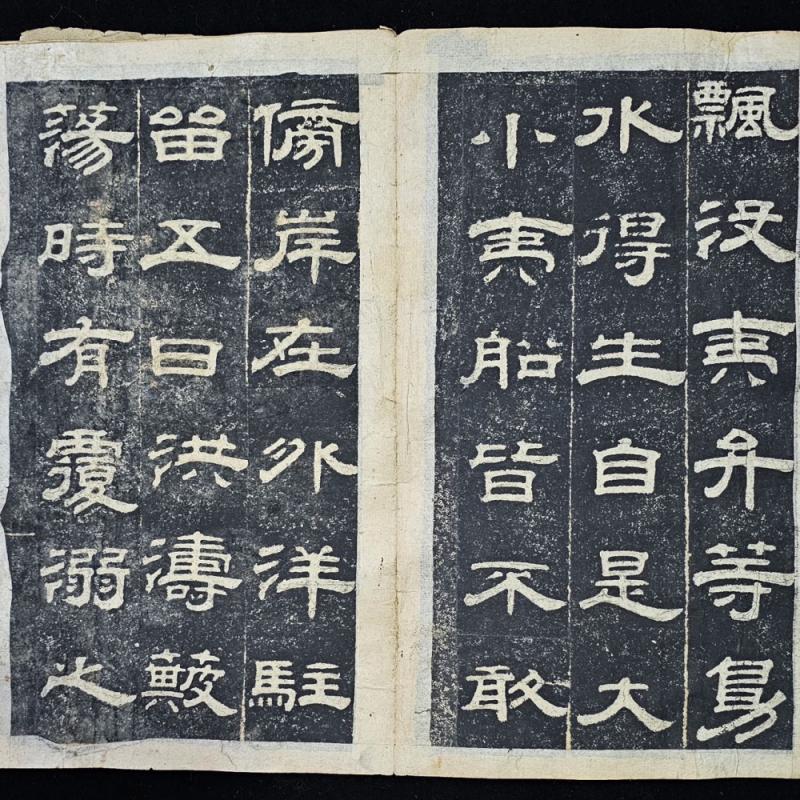 飄没夷弁等鳧
水得生自是大
小夷船皆不敢
傍岸在外洋駐
留五日洪濤簸
蕩時有覆溺之